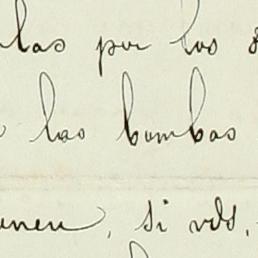 las por los
las bombas
, si vds.